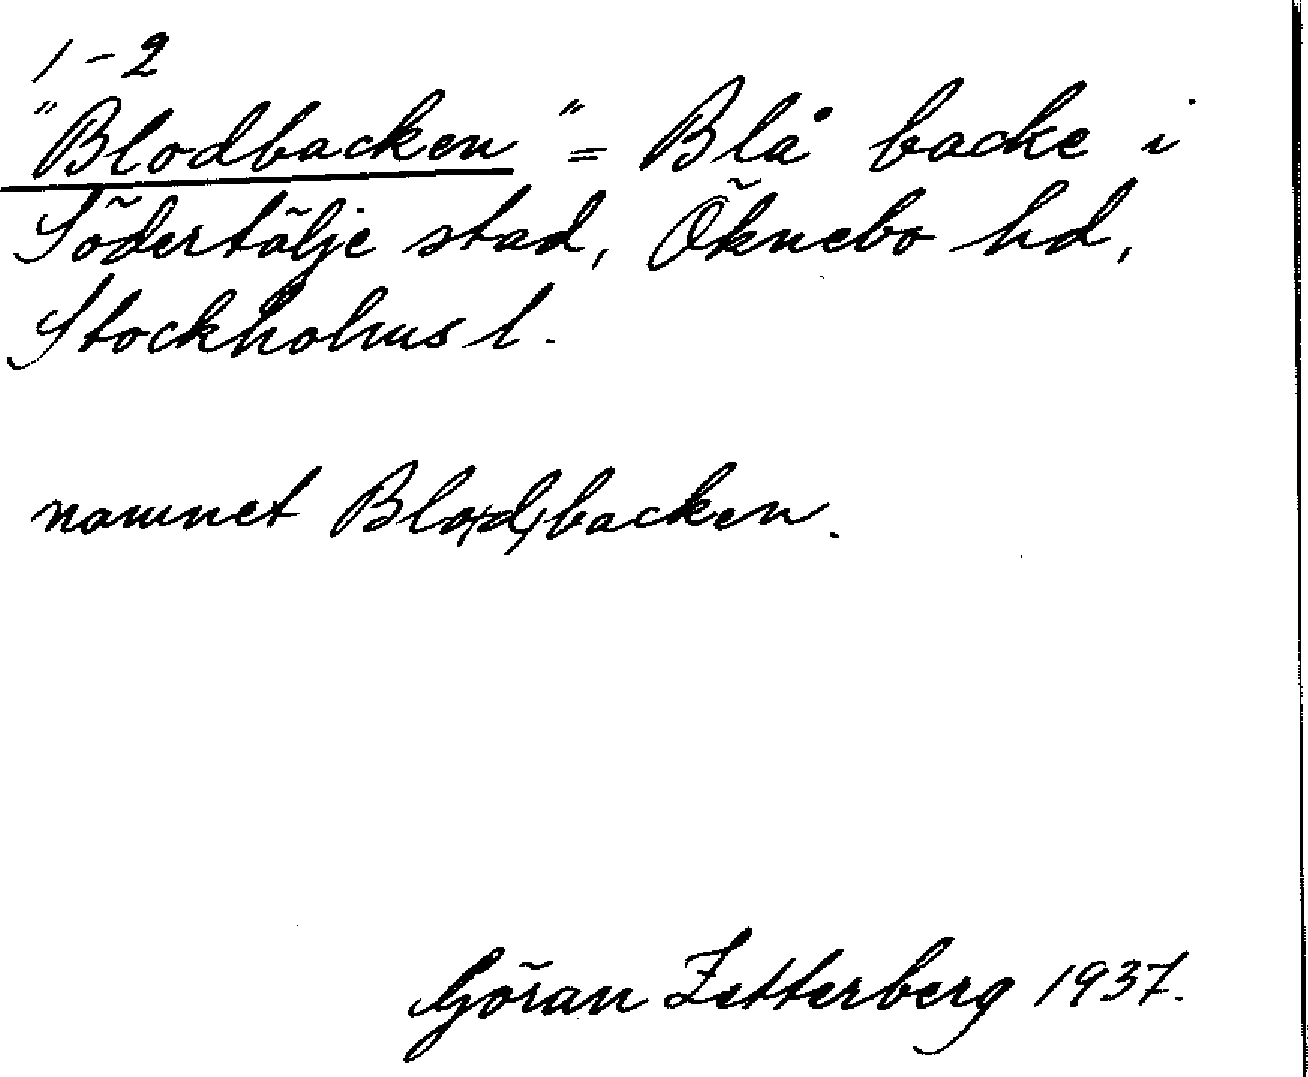 1-2
"Blodbacken" = Blå backe i
Södertälje stad, Öknebo hd,
Stockholms l.
namnet Blo(d)backen.
Göran Zetterberg 1937.